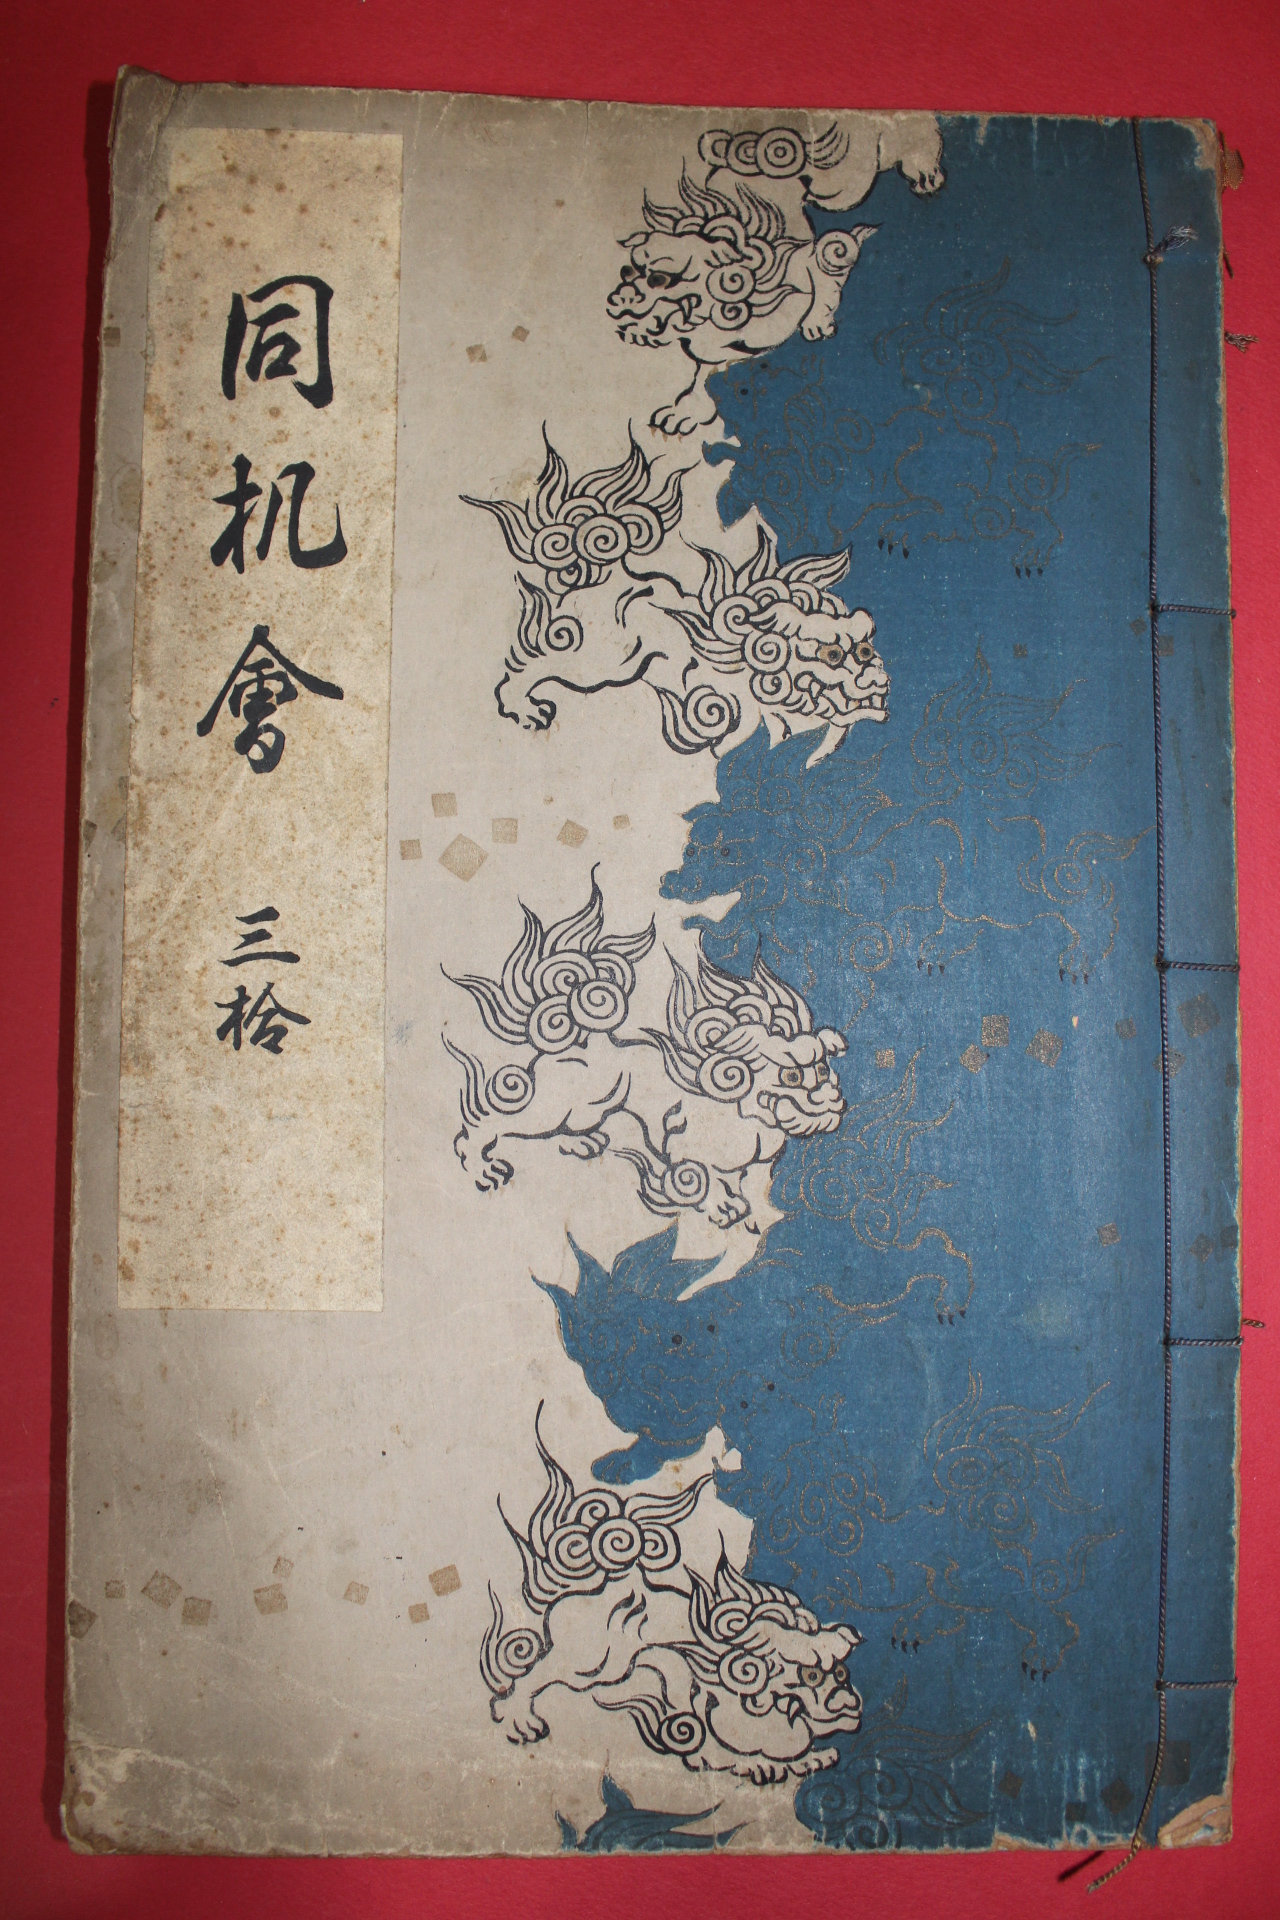 同机會
三拾